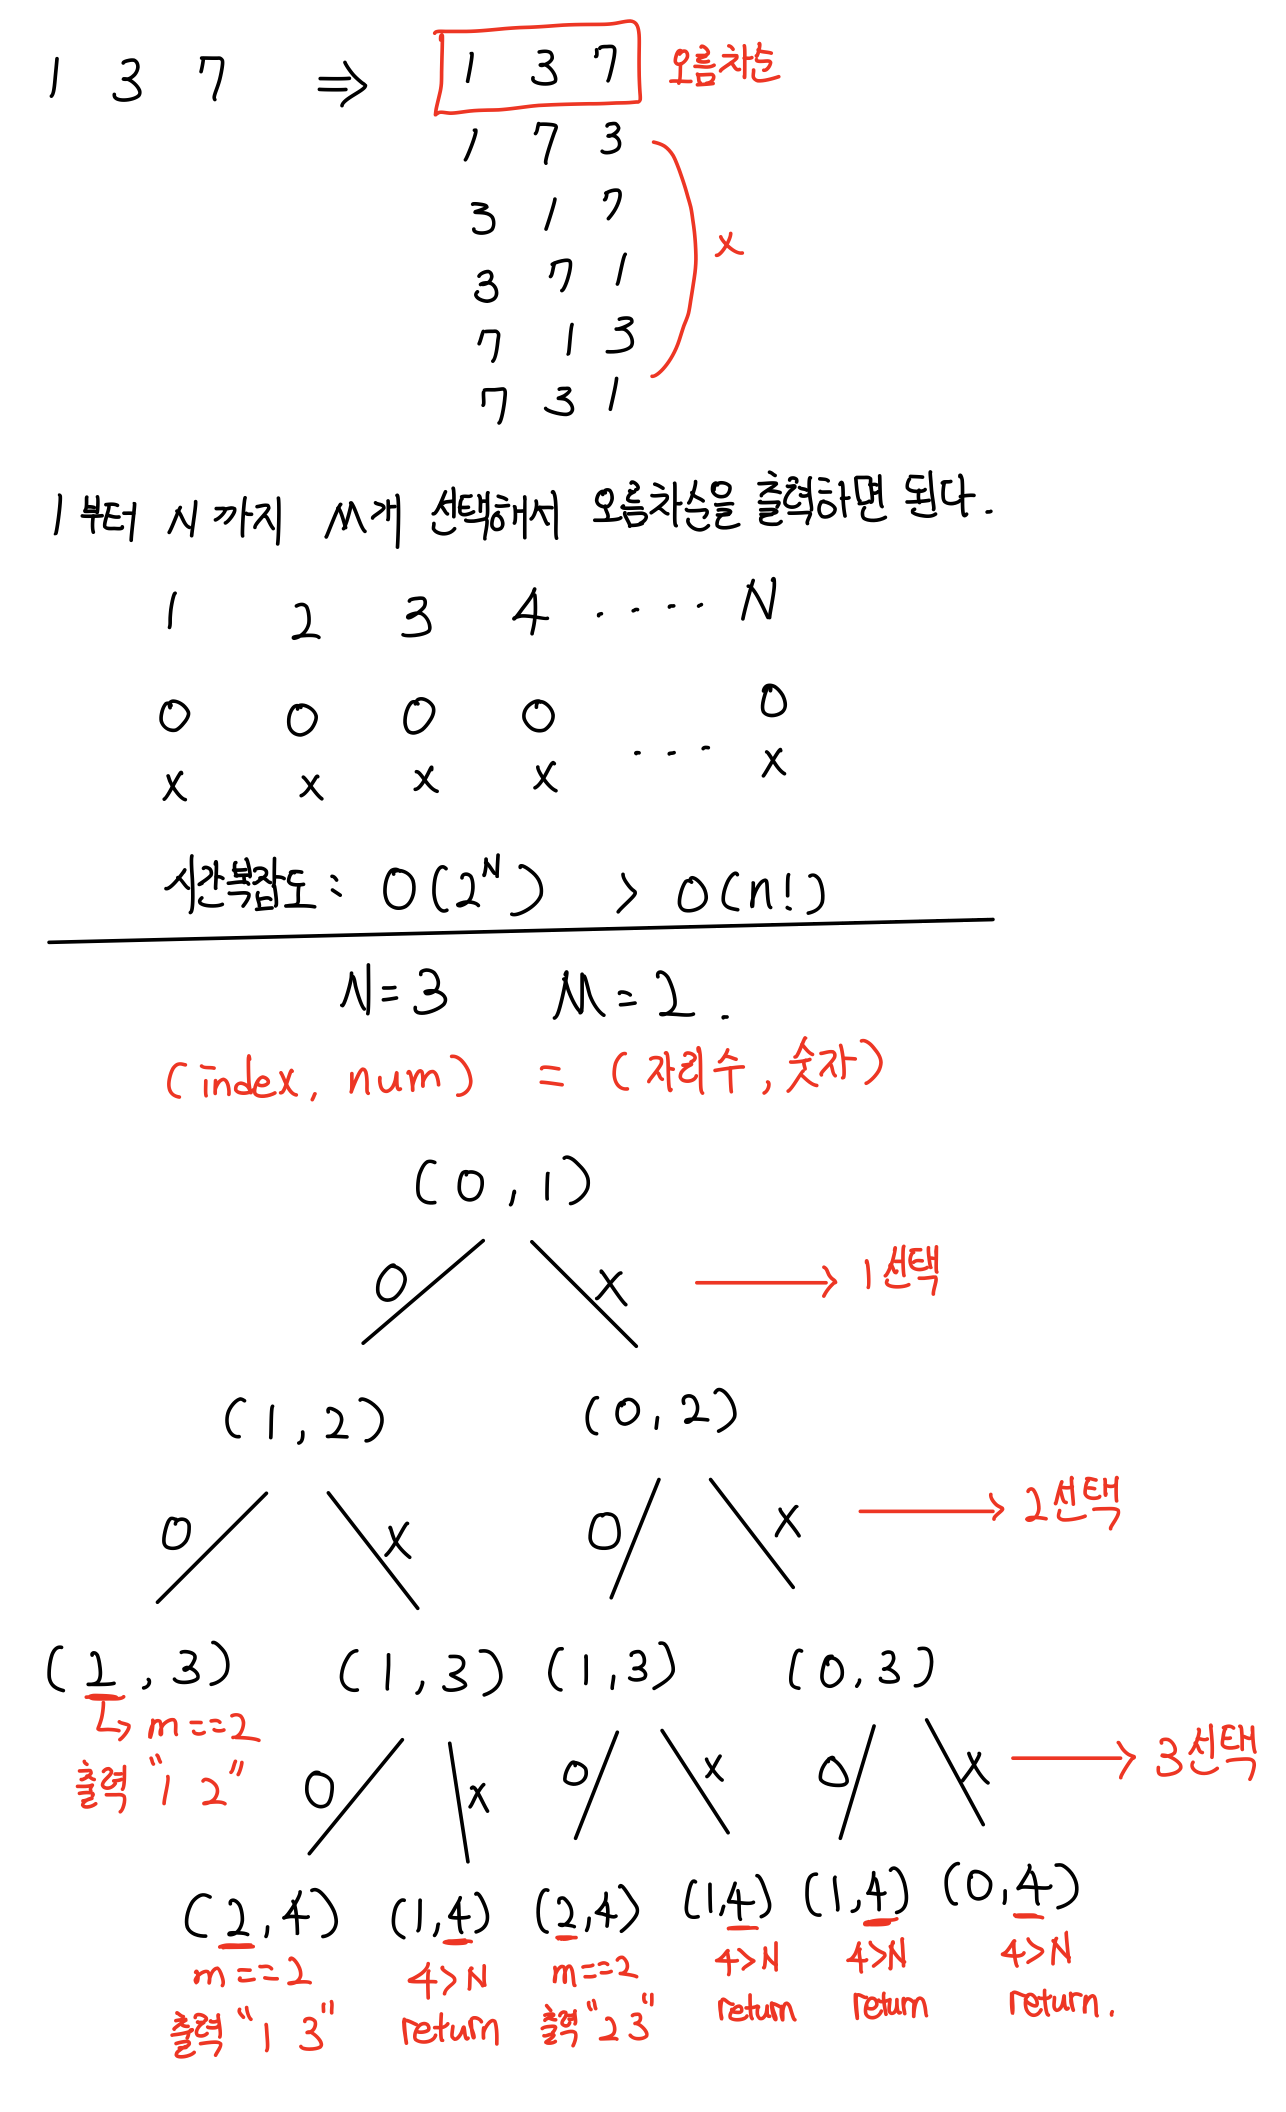 1 3 7 ⇒ 1 3 7 오름차순
1 7 3
3 1 7
x
3 7 1
7 1 3
7 3 1
1부터 N까지 M개 선택해서 오름차순을 출력하면 된다.
1 2 3 4 ···· N
O O O O O
x x x x ··· x
시간복잡도 : O(2^N) > O(n!)
N=3 M=2.
(index, num) = (자리수, 숫자)
(0, 1)
O x → 1선택
(1, 2) (0, 2)
O x O x → 2선택
(2, 3) (1, 3) (1, 3) (0, 3)
↳ m==2
출력 "1 2"
O x O x O x → 3선택
(2, 4) (1, 4) (2, 4) (1, 4) (1, 4) (0, 4)
m==2 4>N m==2 4>N 4>N 4>N
출력 "1 3" return 출력 "2 3" return return return.